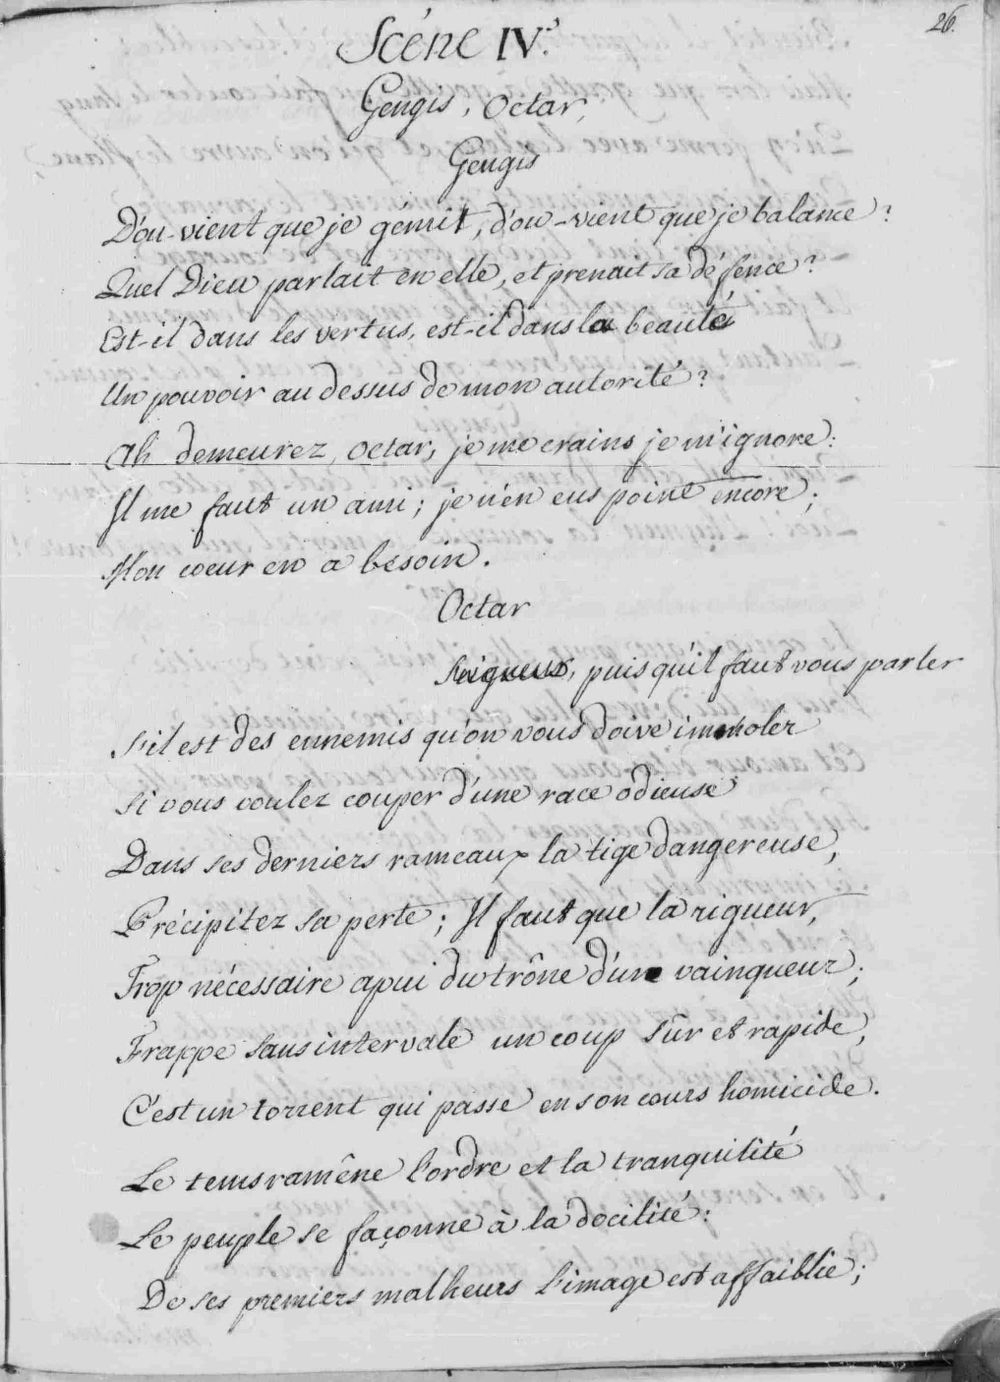 26.
Scéne IV.e
Gengis, Octar,
Gengis
D'ou-vient que je gémit, d'ou-vient que je balance?
Quel Dieu parlait en elle, et prenait sa défence?
Est-il dans les vertus, est-il dans la beauté
Un pouvoir au dessus de mon autorité?
Ah demeurez, Octar, je me crains je m'ignore:
Il me faut un ami; je n'en eus point encore;
Mon coeur en a besoin.
Octar
Seigneur, puis qu'il faut vous parler
S'il est des ennemis qu'on vous doive immoler
Si vous voulez couper d'une race odieuse
Dans ses derniers rameaux la tige dangereuse,
Précipitez sa perte; Il faut que la rigueur,
Trop nécessaire apui du trône d'un vainqueur;
Frappe sans intervale un coup sûr et rapide,
C'est un torrent qui passe en son cours homicide.
Le tems ramêne l'ordre et la tranquilité
Le peuple se façonne à la docilité:
De ses premiers malheurs l'image est affaiblie;